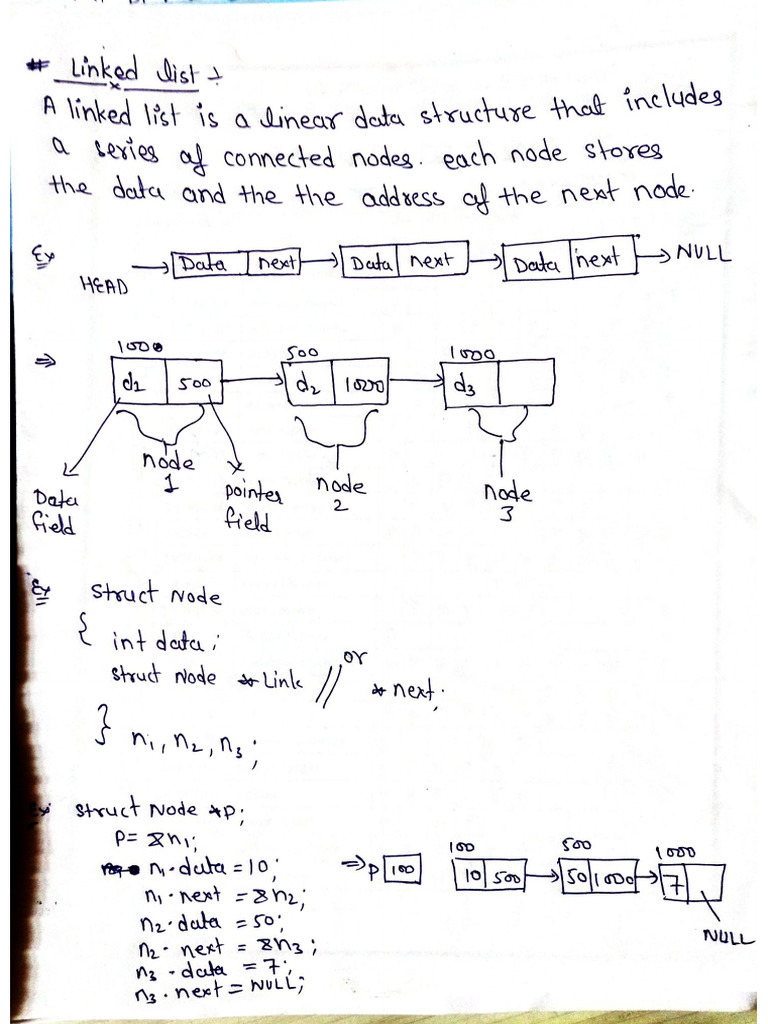 # Linked list :-
A linked list is a linear data structure that includes
a series of connected nodes. each node stores
the data and the the address of the next node.
Ex HEAD → Data next → Data next → Data next → NULL
⇒ 1000 500 1000
d1 500 → d2 1000 → d3
node 1 node 2 node 3
Data field pointer field
Ex struct Node
{ int data;
struct Node *Link // or *next;
} n1, n2, n3;
Ex struct Node *P;
P= &n1;
n1.data = 10;
n1.next = &n2;
n2.data = 50;
n2.next = &n3;
n3.data = 7;
n3.next = NULL;
⇒ P 100
100 500 1000
10 500 → 50 1000 → 7
NULL